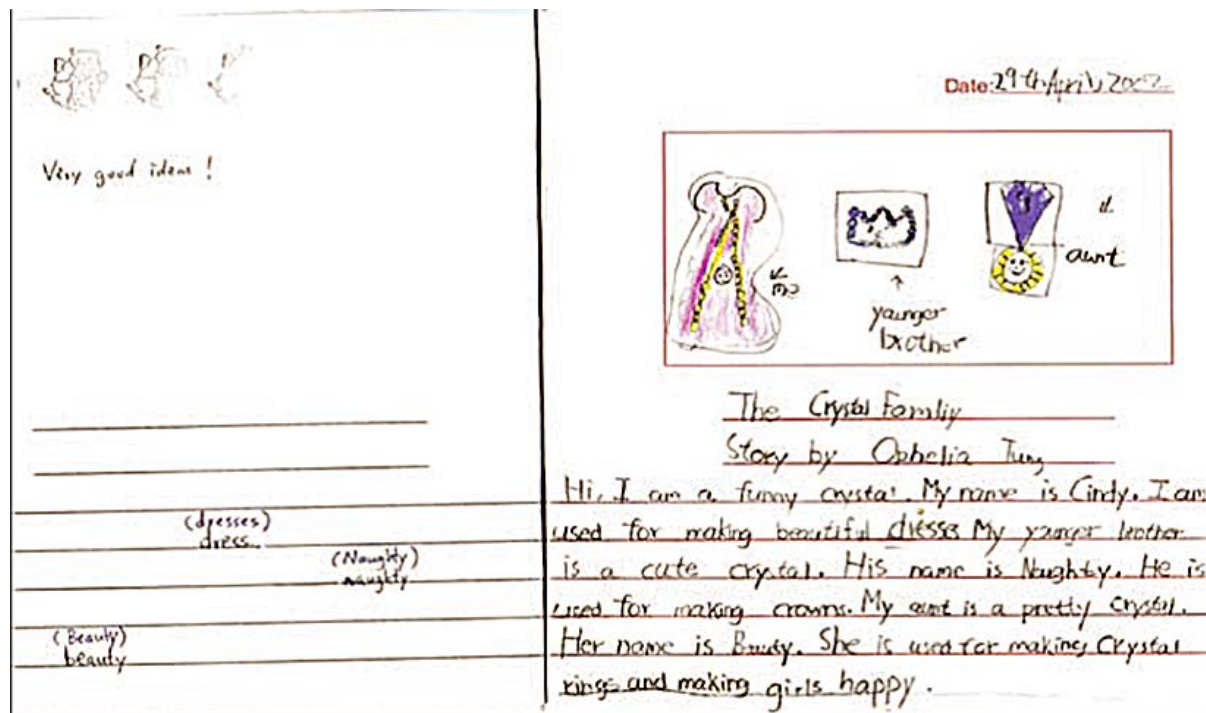 Very good ideas!
(dresses)
dress
(Naughty)
naughty
(Beauty)
beauty
Date: 29th April, 2002
me
aunt
younger
brother
The Crystal Famliy
Story by Ophelia Tung
Hi, I am a funny crystal. My name is Cindy. I am
used for making beautiful dresses My younger brother
is a cute crystal. His name is Naughty. He is
used for making crowns. My aunt is a pretty crystal.
Her name is Beauty. She is used for making Crystal
rings and making girls happy.